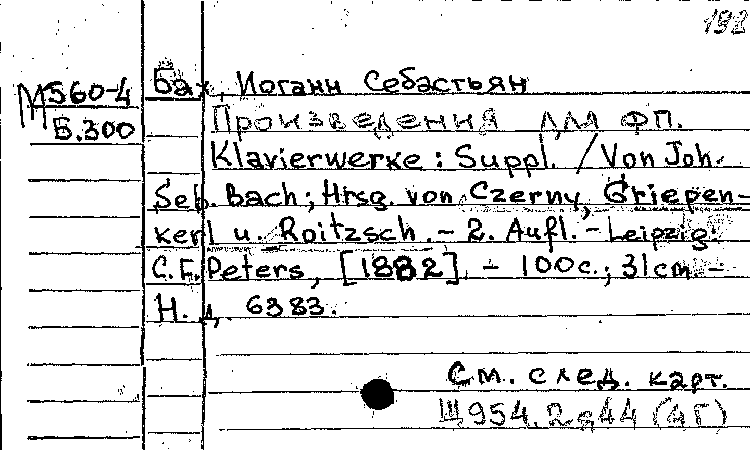 192
Бах, Иоганн Себастьян
М560-4
Б.300
Произведения для фп.
Klavierwerke : Suppl. / Von Joh.
Seb. Bach; Hrsg. von Czerny, Griepen-
kerl u. Roitzsch. - 2. Aufl. - Leipzig:
C. F. Peters, [1882]. - 100с.; 31cm -
Н. д. 6383.
См. след. карт.
Щ954.2я44 (4Г)